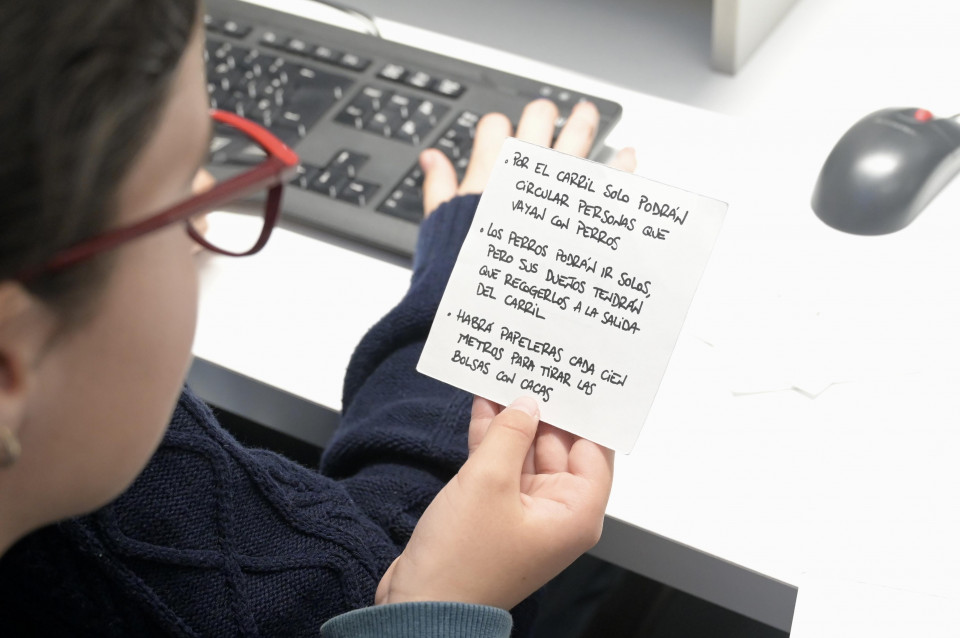 . POR EL CARRIL SOLO PODRÁN
CIRCULAR PERSONAS QUE
VAYAN CON PERROS
. LOS PERROS PODRÁN IR SOLOS,
PERO SUS DUEÑOS TENDRÁN
QUE RECOGERLOS A LA SALIDA
DEL CARRIL
. HABRÁ PAPELERAS CADA CIEN
METROS PARA TIRAR LAS
BOLSAS CON CACAS